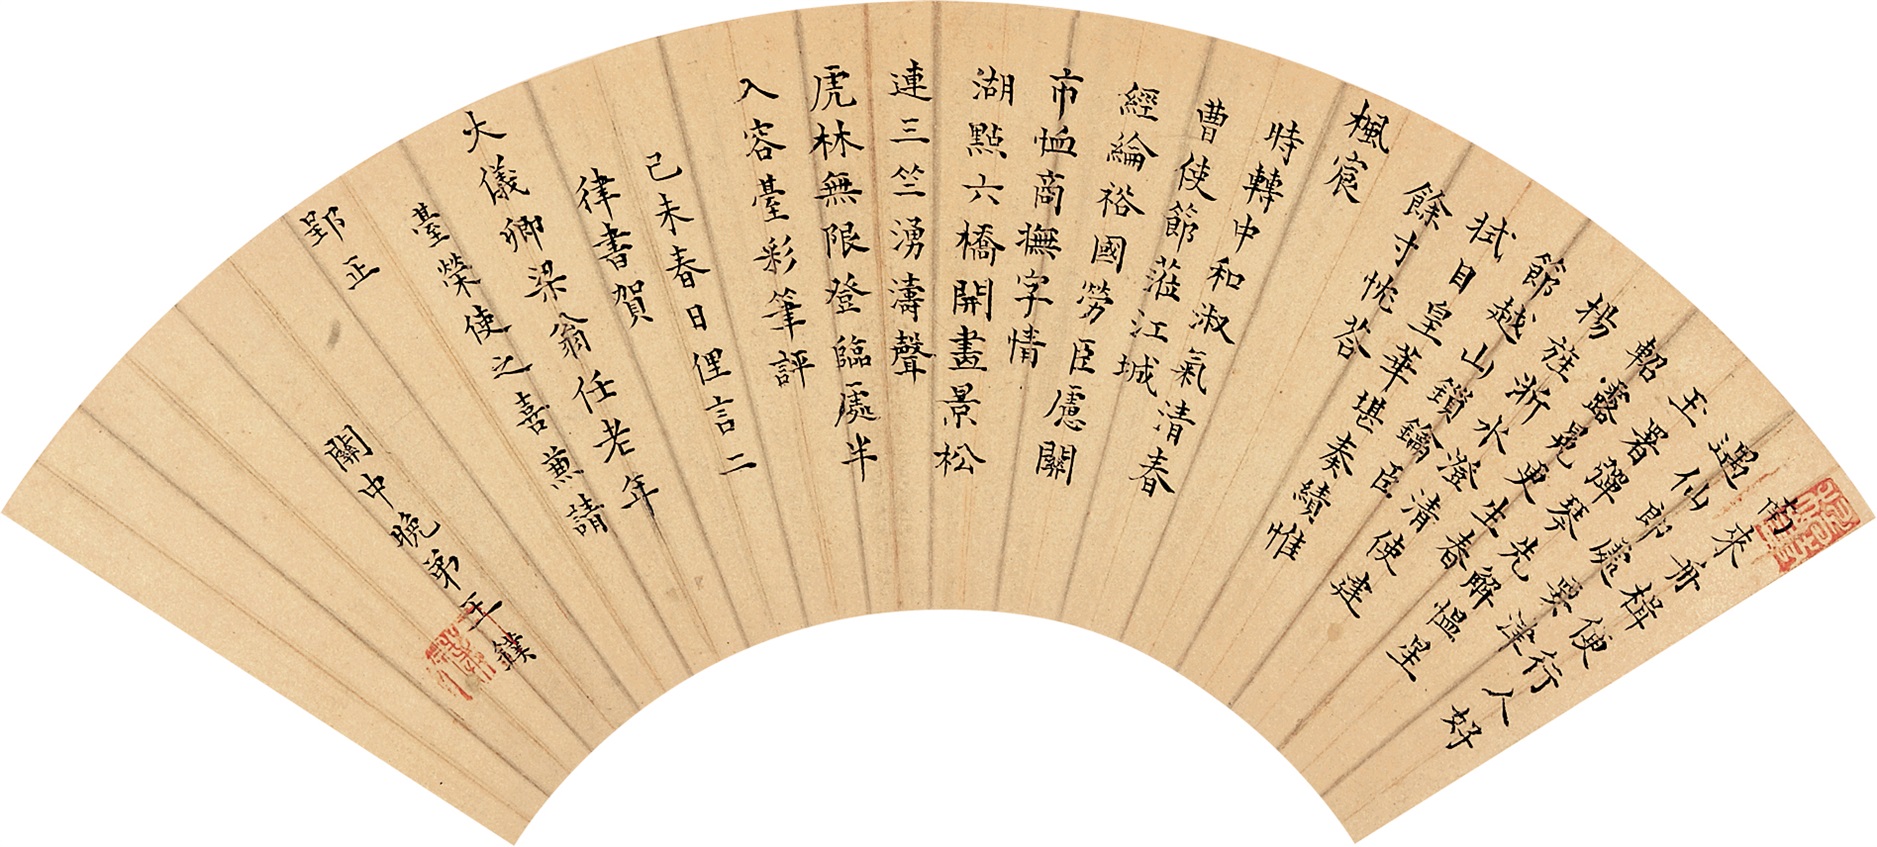 南來舟楫便行人好
遇仙郎處要津
玉署彈琴先解慍星
軺露冕更生春
楊旌浙水澄清使建
節越山鎖鑰臣
拭目皇華堪奏績惟
餘寸忱荅
楓宸
時轉中和淑氣清春
曹使節蒞江城
經綸裕國勞臣慮關
市恤商撫字情
湖點六橋開畫景松
連三竺湧濤聲
虎林無限登臨處半
入容臺彩筆評
己未春日俚言二
律書賀
大儀卿梁翁任老年
臺榮使之喜兼請
郢正
關中晚弟王鏷